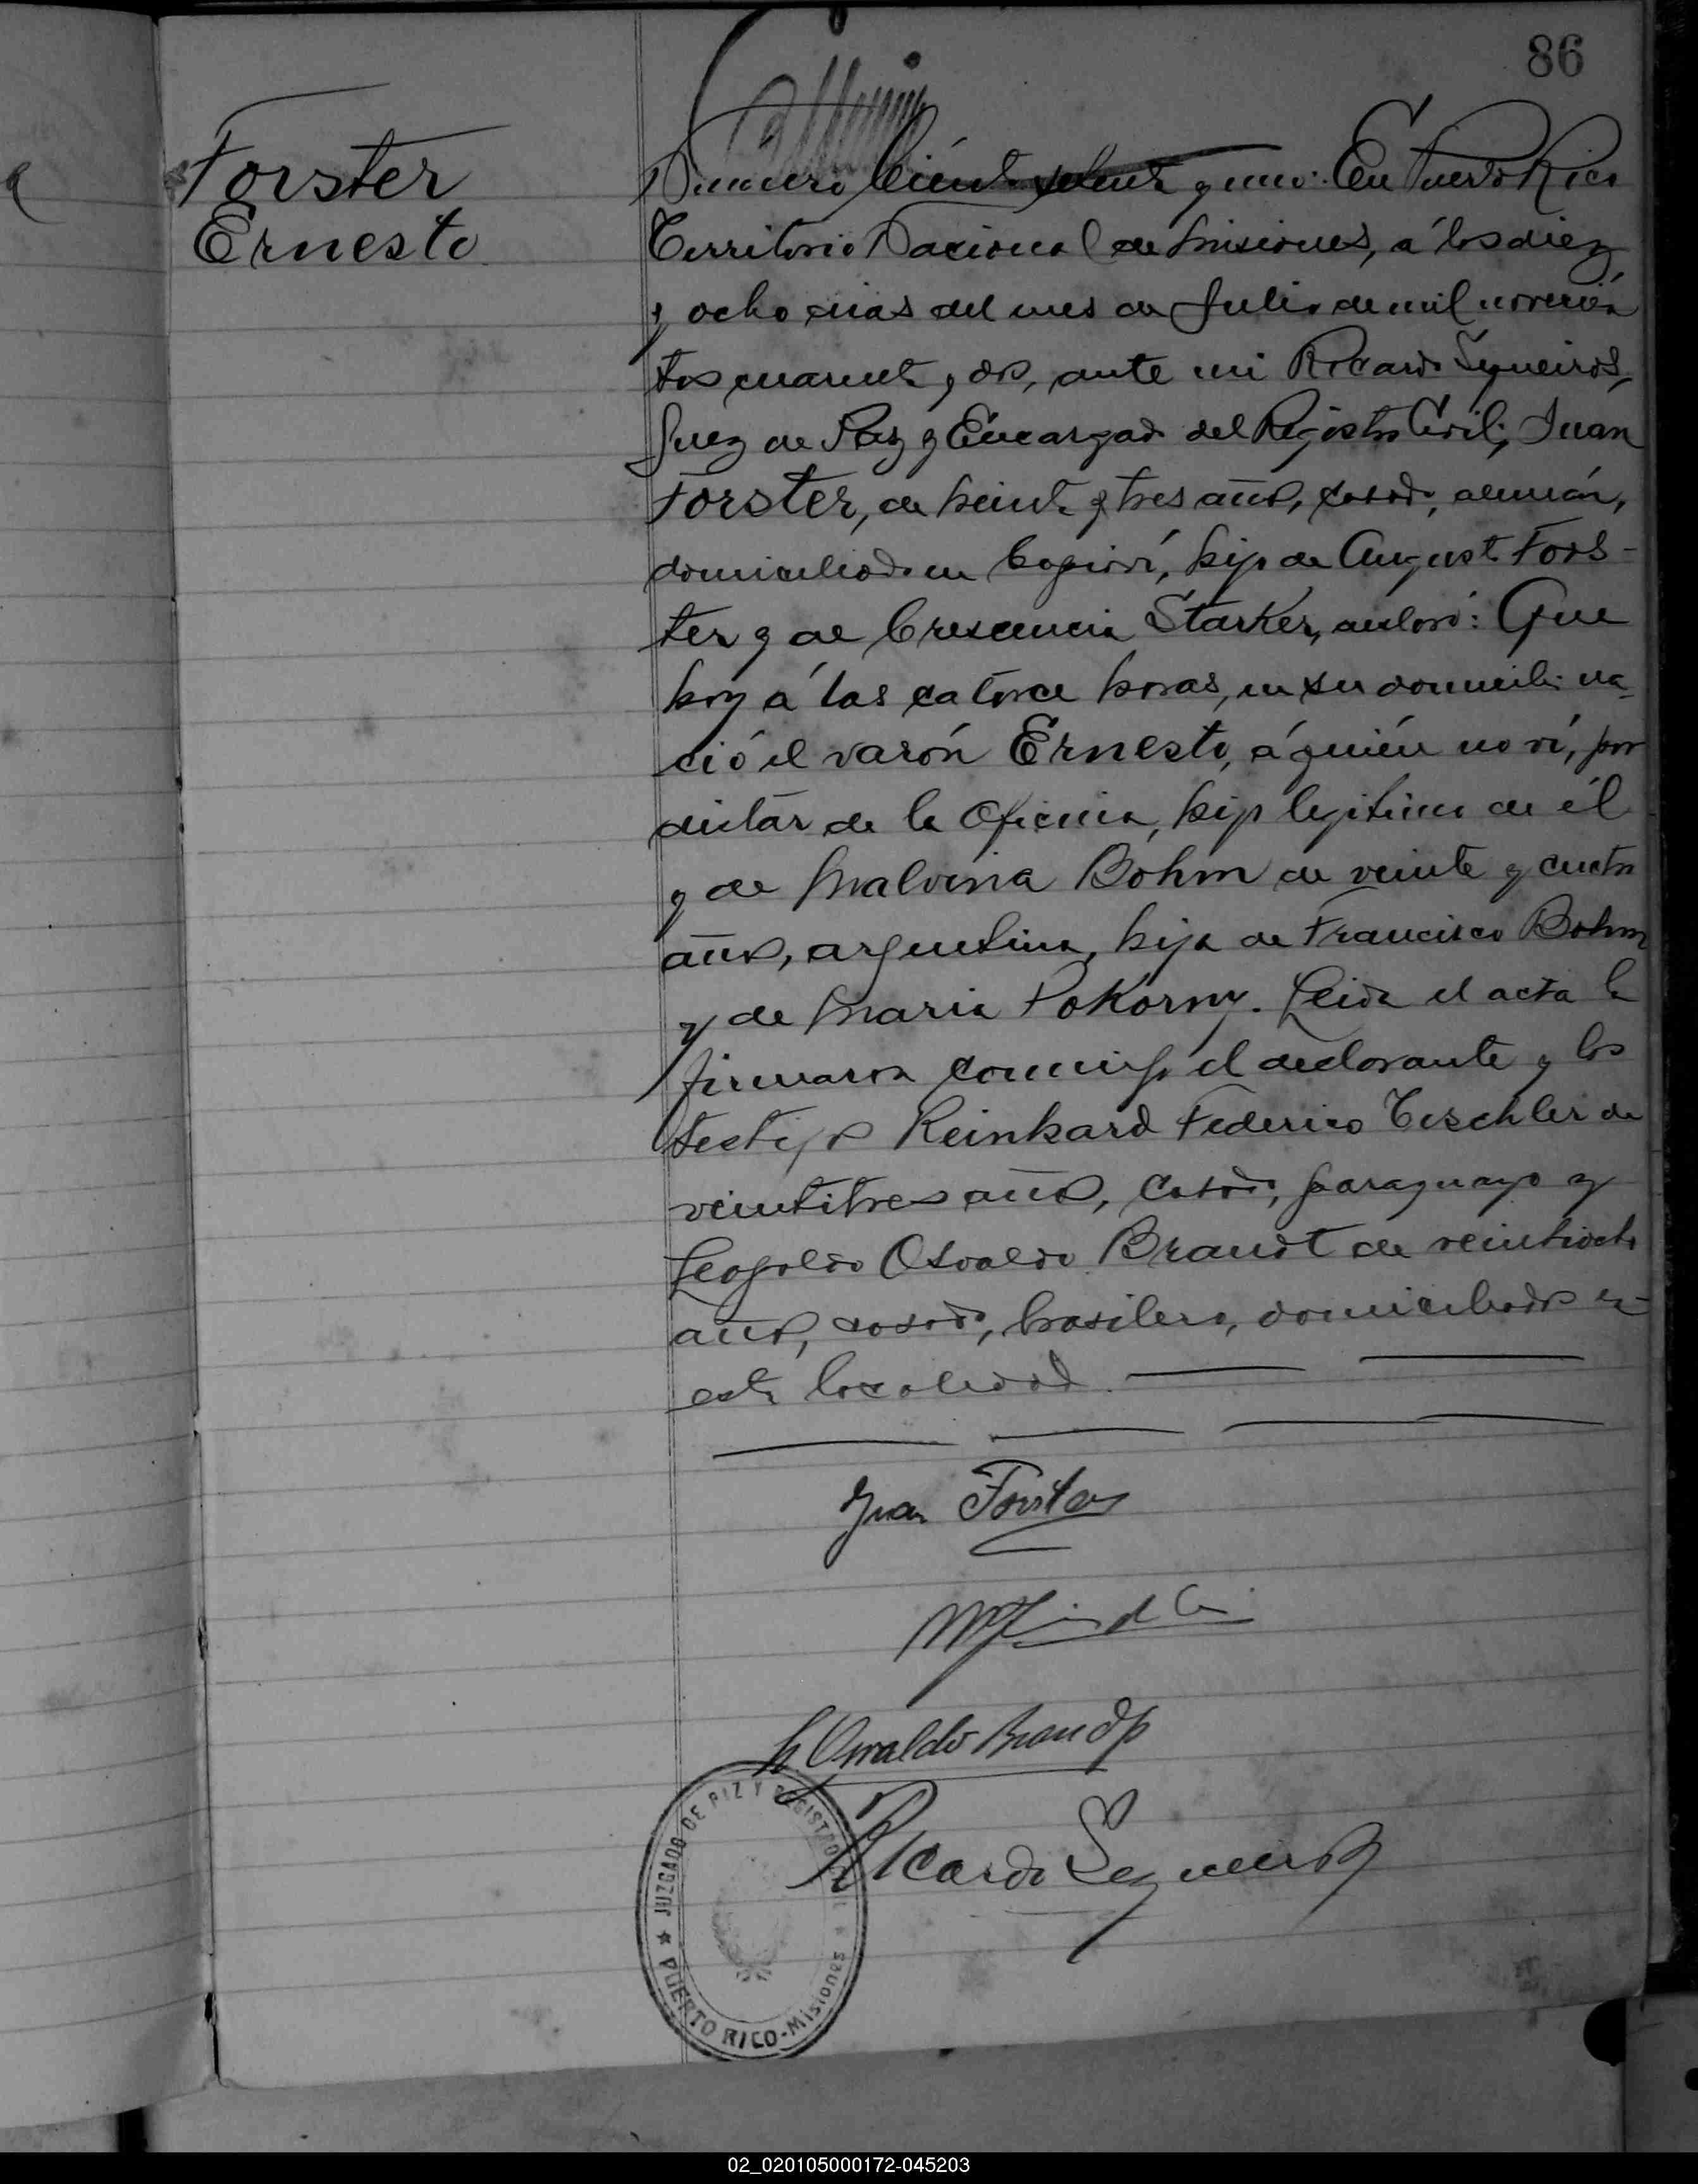 86
Forster
Ernesto
Número Ciento setenta y uno: En Puerto Rico
Territorio Nacional de Misiones, á los diez
y ocho dias del mes de Julio de mil novecien
tos cuarenta y dos, ante mi Ricardo Sequeiros,
Juez de Paz y Encargado del Registro Civil; Juan
Forster, de treinta y tres años, casado, alemán,
domiciliado en Capioví, hijo de August Fors-
ter y de Crescencia Starker, declaró: Que
hoy á las catorce horas, en su domicilio na-
ció el varón Ernesto, á quién no ví, por
distar de la Oficina, hijo legitimo de él
y de Malvina Böhm de veinte y cuatro
años, argentina, hija de Francisco Bohm
y de Maria Pokorny. Leida el acta la
firmaron conmigo el declarante y los
testigos Reinhard Federico Teschler de
veintitres años, casado, paraguayo y
Leopoldo Osvaldo Brandt de veintiocho
años, casado, brasilero, domiciliados en
esta localidad.
Juan Forster
L. Osvaldo Brandt
Ricardo Sequeiros
JUZGADO DE PAZ Y REGISTRO CIVIL
PUERTO RICO-Misiones
02_020105000172-045203